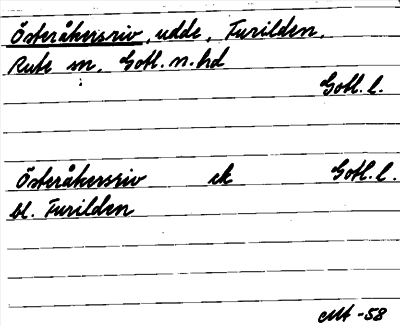 Österåkersriv, udde, Furilden,
Rute sn. Gotl. n. hd
Gotl. l.
Österåkersriv ek Gotl. l.
bl. Furilden
-58